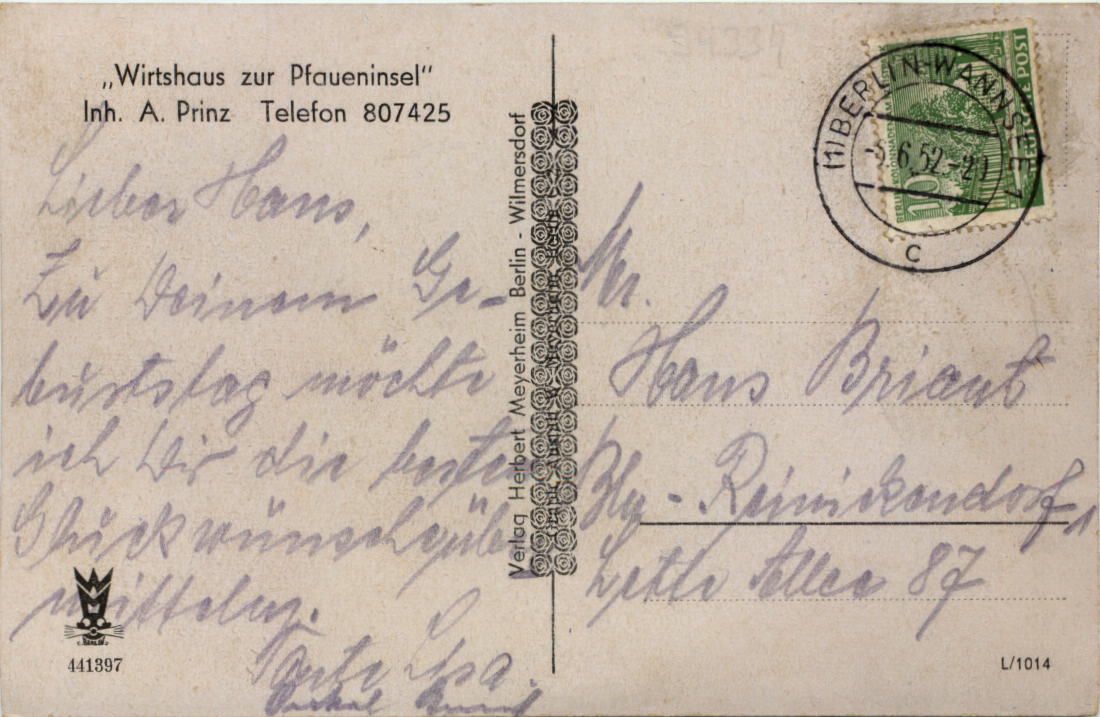 „Wirtshaus zur Pfaueninsel"
Inh. A. Prinz Telefon 807425
Lieber Hans,
Zu Deinem Ge-
burtstag möchte
ich Dir die besten
Glückwünsche über
mitteln.
Tante Lisa.
Onkel
BERLIN
441397
Verlag Herbert Meyerheim Berlin - Wilmersdorf
(1) BERLIN-WANNSEE 1
6.52.-20
c
10
POST
Mr.
Hans Briant
Bln - Reinickendorf, 1
Lette Allee 87
L/1014